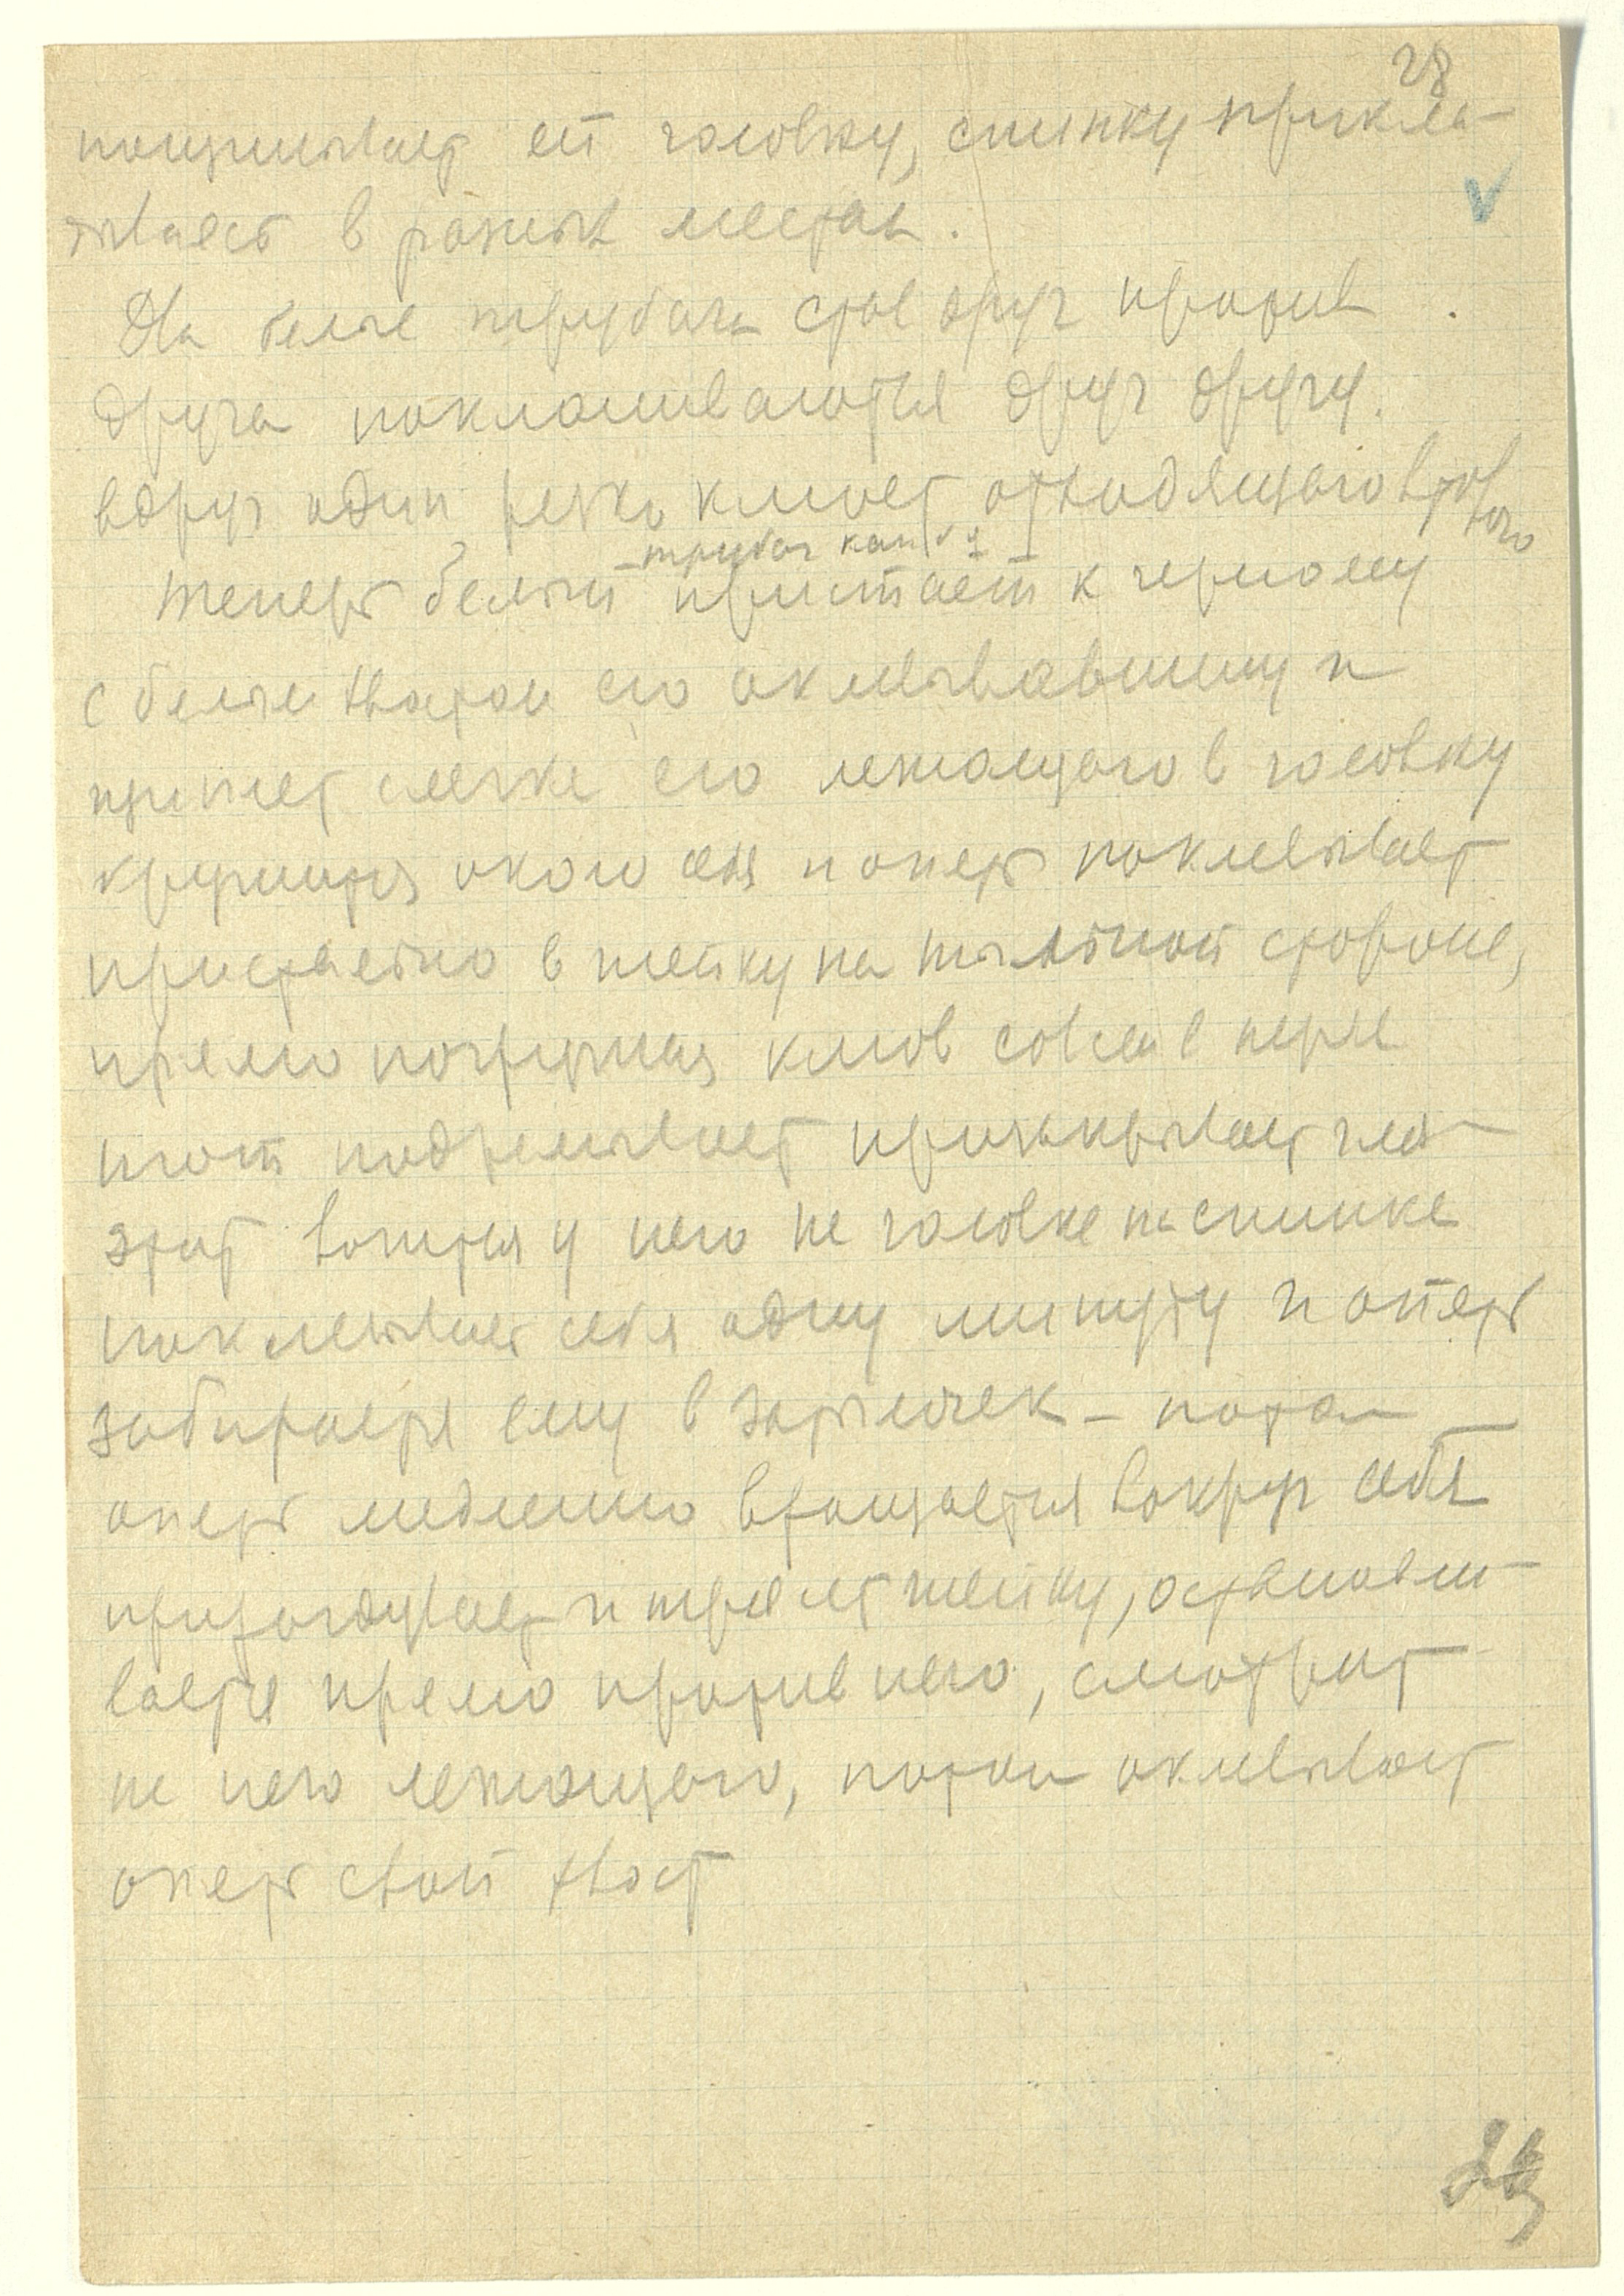 28
пощипывает ей головку, спинку прикле-
вывает в разных местах.
Два белые трубача став друг против
друга покланиваются друг другу.
вдруг один резко клюет отходящего второго
трубач как бы
Теперь белый пристает к черному
с белым хвостом его оклевывавшему и
щиплет слегка его лежащего в головку
кружится около себя и опять поклевывает
пристально в шейку на тыльной стороне,
прямо погружая клюв совсем в перья
и тот подремывает призакрывает гла-
этот возится у него на головке на спинке
поклевывает себя одну минуту и опять
забирается ему в затылочек – потом
опять медленно вращается вокруг себя
и трясет шейку, останавли-
вается прямо против него, смотрит
на него лежащего, потом оклевывает
опять свой хвост